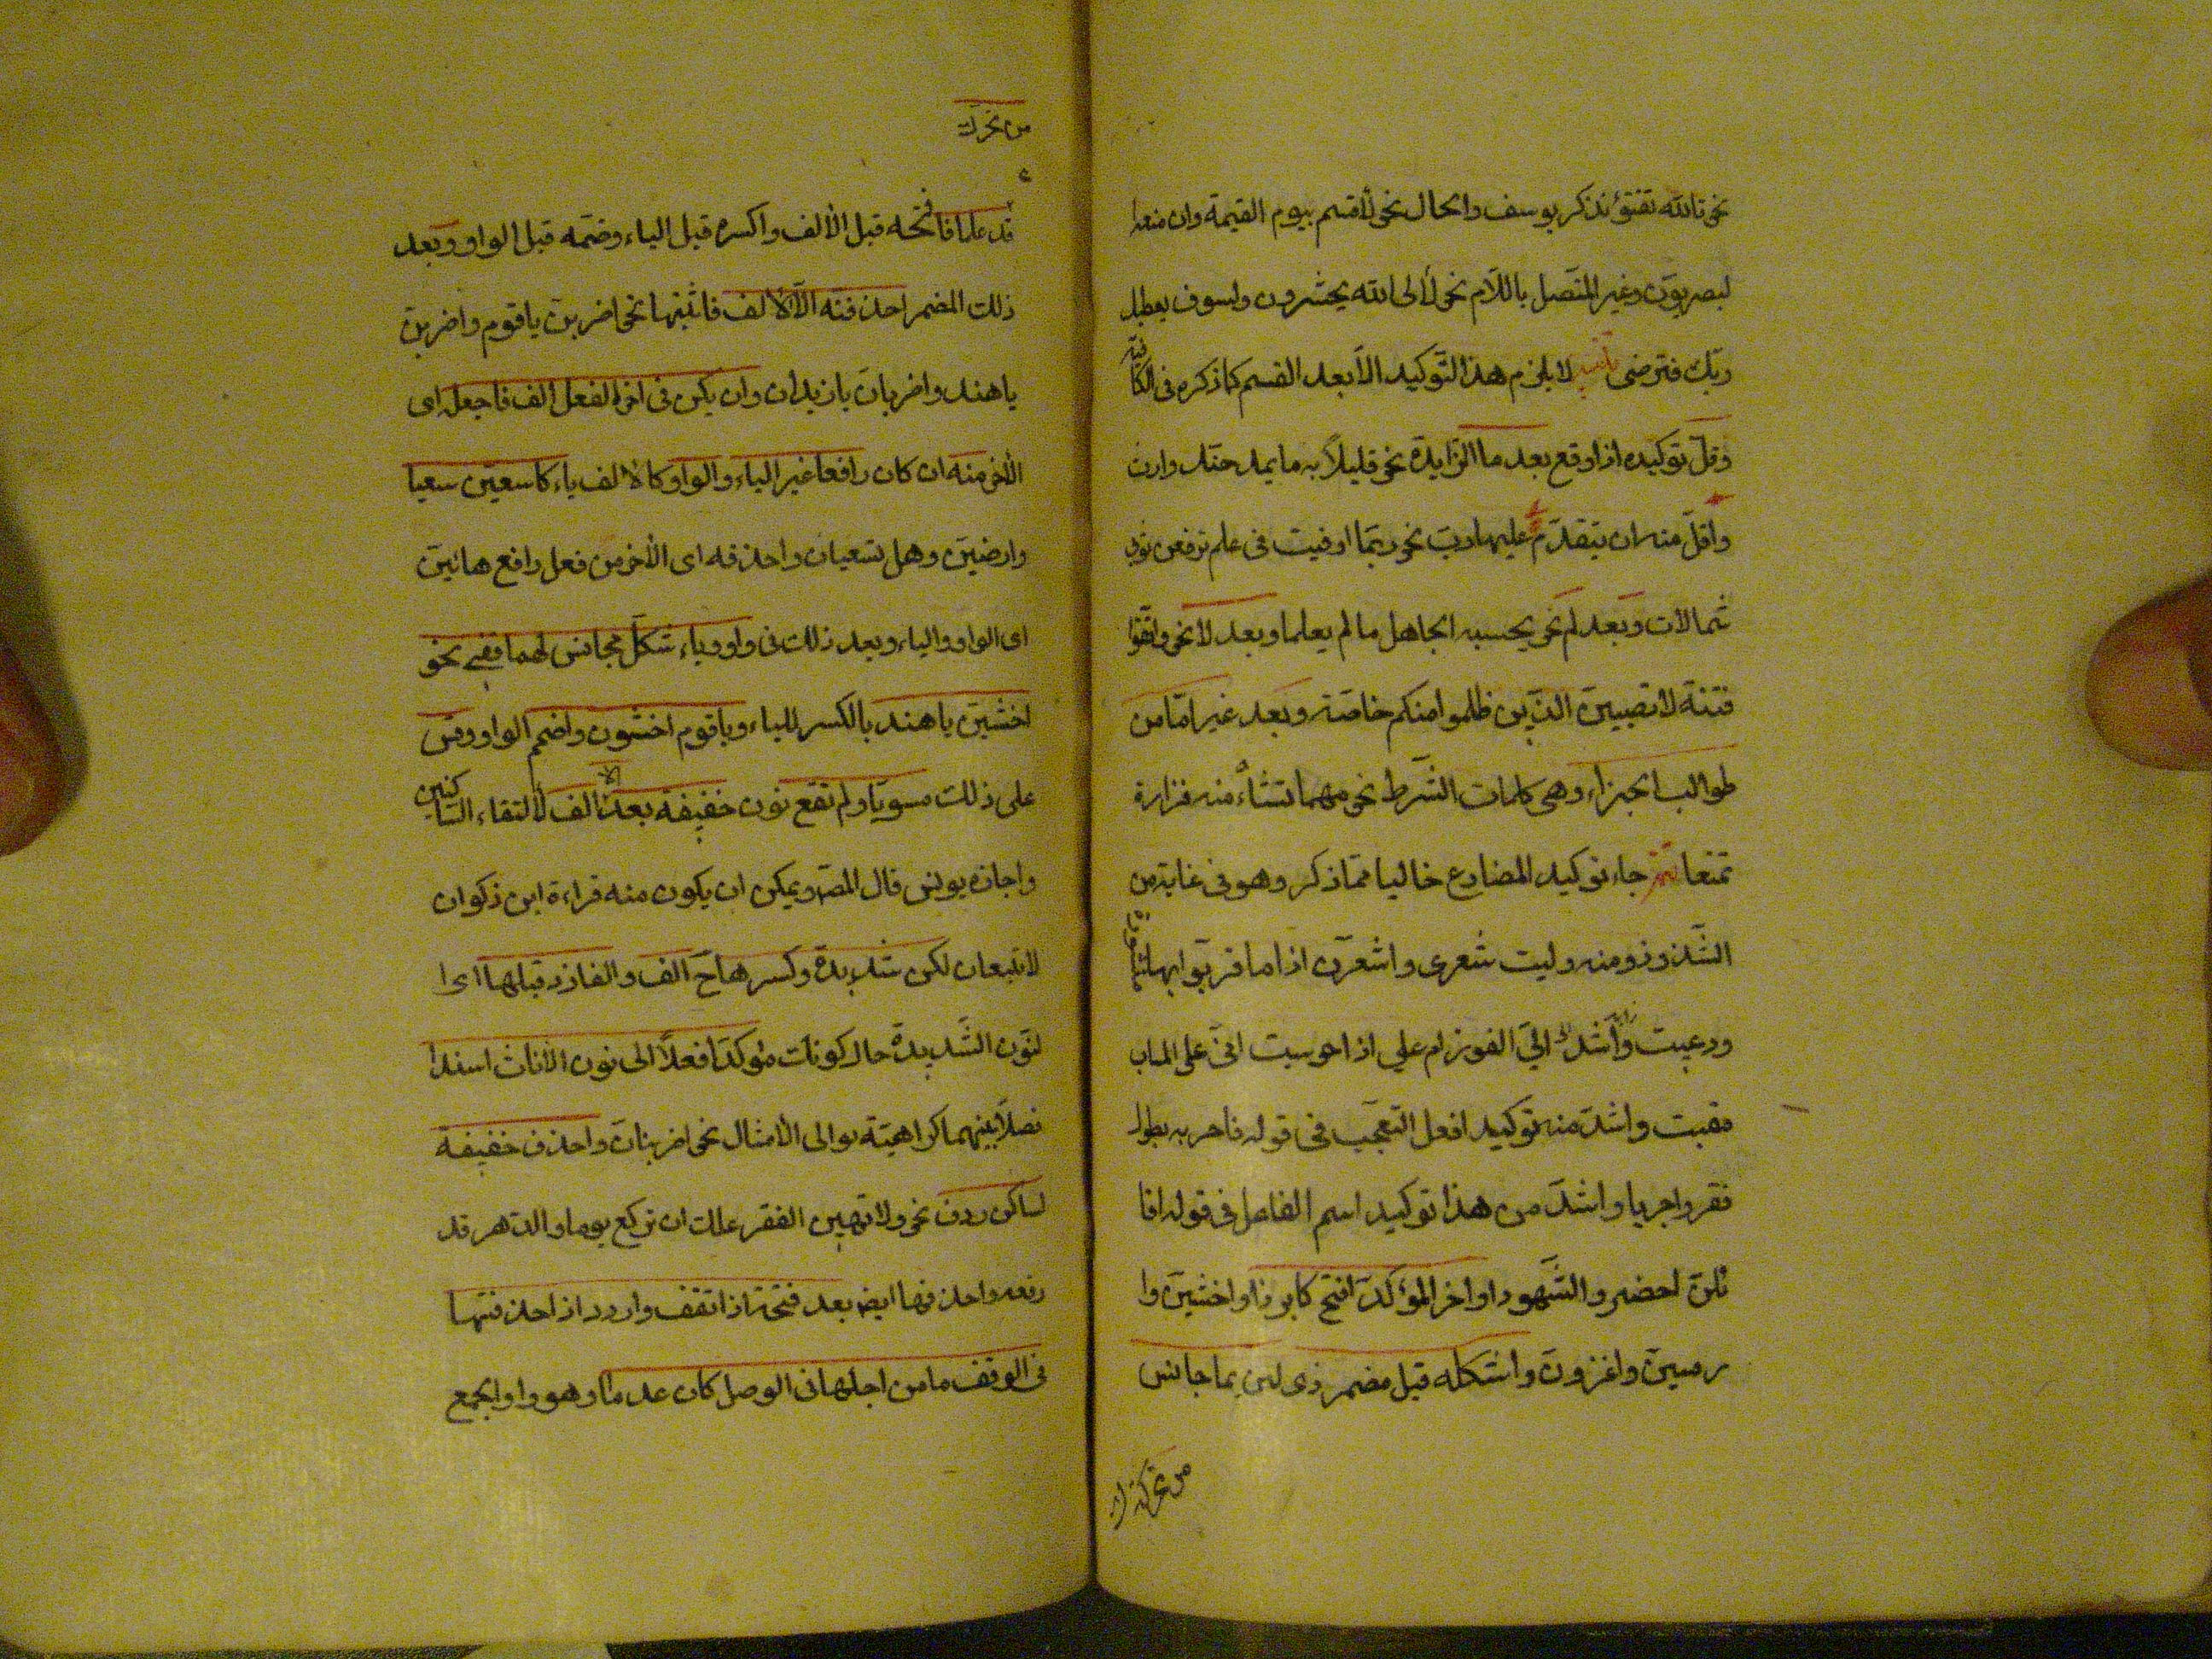 نحو تالله تفتؤ تذكر يوسف والحال نحو لأقسم بيوم القيمة وان منعه
لبصريون وغير المتصل باللام نحو لألى الله يحشرون ولسوف يعطيك
ربك فترضى تنبيه لا يلزم هذا التوكيد الا بعد القسم كما ذكره في الكافية
وقل توكيده اذا وقع بعد ما الزايدة نحو قليلا به ما يمدحنك وارث
واقل منه ان يتقدم عليها رب نحو ربما اوفيت في علم ترفعن ثوبي
شمالات وبعد لم نحو يحسبه الجاهل ما لم يعلما وبعد لا نحو واتقوا
فتنة لا تصيبن الذين ظلموا منكم خاصة وبعد غير اما من
طوالب الجزاء وهي كلمات الشرط نحو مهما تشاء منه فزارة
تمنعا تتمة جاء توكيد المضارع خاليا مما ذكر وهو في غاية من
الشذوذ ومنه وليت شعرى واشعرن اذا ما قربوها منشورة
ودعيت الى الفوز ام علي اذا حوسبت انى على الحساب
مقيت واشذ منه توكيد افعل التعجب في قوله فاحر به بطول
فقر واحريا واشذ من هذا توكيد اسم الفاعل في قوله اقا
ئلن احضروا الشهودا واخر المؤكد افتح كابرزا واخشين وا
رمين واغزون واشكله قبل مضمر ذى لين بما جانس
من تحرك
من تحرك
قد علما فافتحه قبل الألف واكسره قبل الياء وضمه قبل الواو وبعد
ذلك المضمر احذفنه الا الالف فاثبتها نحو اضربن يا قوم واضربن
يا هند واضربان يا زيدان وان يكن في اخر الفعل الف فاجعله اى
الأخر منه ان كان رافعا غير الياء والواو كالالف ياء كاسعين سعيا
وارضين وهل تسعيان واحذفه اى الأخر من فعل رافع هاتين
اى الواو والياء وبعد ذلك في واو وياء شكل مجانس لهما قفى نحو
اخشين يا هند بالكسر للياء ويا قوم اخشون واضمم الواو وقس
على ذلك مسويا ولم تقع نون خفيفة بعد الالف لألتقاء الساكنين
واجازه يونس قال المص ويمكن ان يكون منه قراءة ابن ذكوان
لا تتبعان لكن شديدة وكسرها ح الف والفا زد قبلها اى ا
لنون الشديدة حال كونك مؤكدا فعلا الى نون الأناث اسندا
فصلا بينهما كراهية توالى الأمثال نحو اضربنان واحذف خفيفة
لساكن ردف نحو ولا تهين الفقير علك ان تركع يوما والدهر قد
رفعه واحذفها ايضا بعد فتحة اذا تقف واردد اذا حذفتها
في الوقف ما من اجلها في الوصل كان عدما وهو واو الجمع